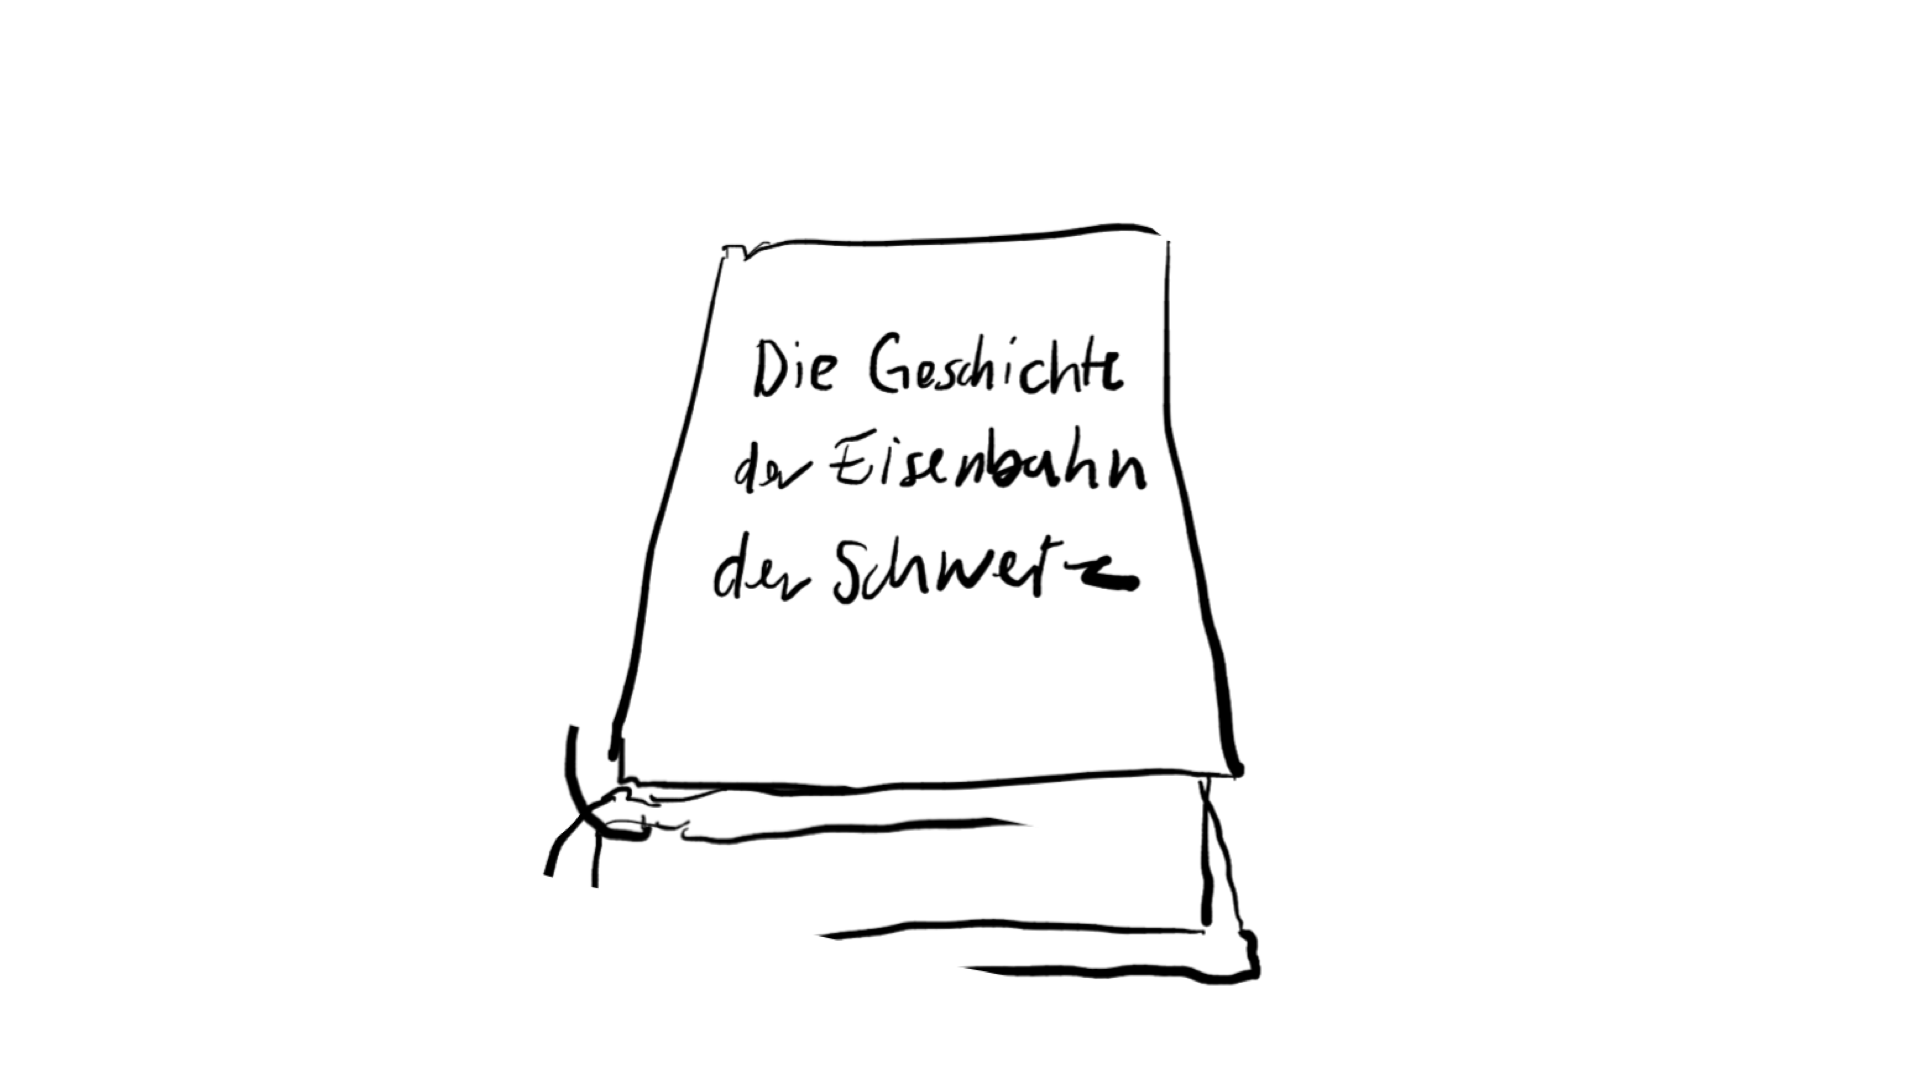 Die Geschichte
der Eisenbahn
der Schweiz